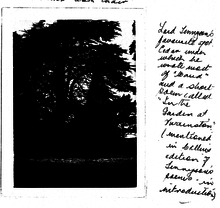 Lord Tennyson's
favourite
Cedar under
which he
wrote most
of "Maud"
and a short
poem called
"In the
Garden at
Swainston"
(mentioned
in
edition of
Tennyson's
poems in
introduction)